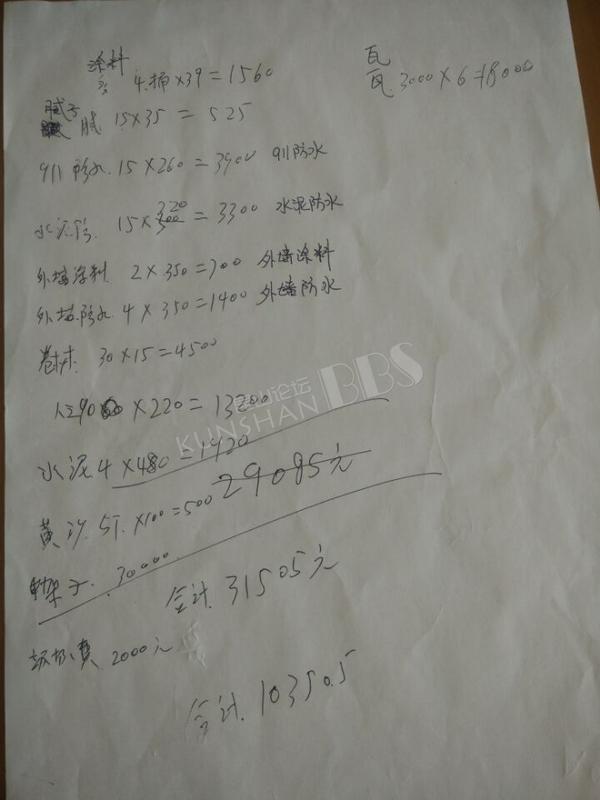 涂料 4.桶×39=1560
瓦
瓦 3000×6=18000
腻子 腻 15×35=525
911防水.15×260=3900 911防水
水泥防. 15×220=3300 水泥防水
外墙涂料 2×350=700 外墙涂料
外墙.防水.4×350=1400 外墙防水
卷材. 30×15=4500
人工90 ×220=13200
水泥4×480=1920
29085元
黄沙.5T.×100=500
架子.30000
合计.31505元
垃圾费 2000元
合计.103505
昆山论坛
KUNSHAN BBS